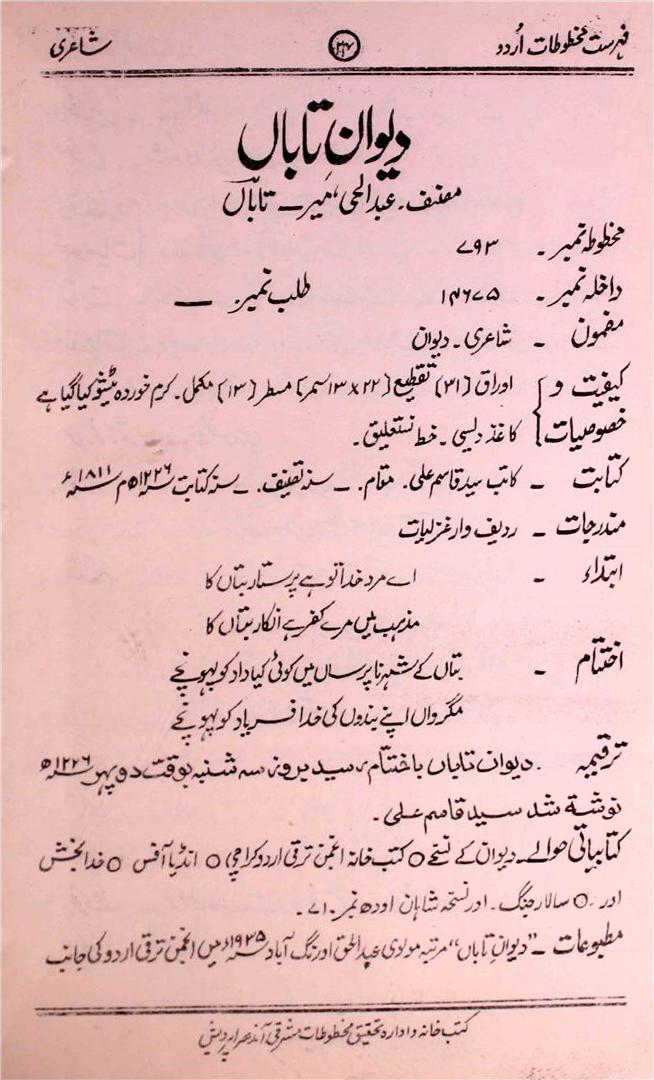 فہرست مخطوطات اُردو ۳۴ شاعری
دیوان تاباں
مصنف۔ عبدالحی، میر ــ تاباں
مخطوطہ نمبر۔ ۷۹۳
داخلہ نمبر۔ ۱۴۶۷۵ طلب نمبر۔ ــــ
مضمون ۔ شاعری۔ دیوان
کیفیت و } اوراق (۳۱) تقطیع (۲۲ × ۱۳ سمر) مسطر (۱۳) مکمل۔ کرم خوردہ ٹیشو کیا گیا ہے
خصوصیات } کاغذ دلیسی۔ خط نستعلیق۔
کتابت ۔ کاتب سید قاسم علی۔ مقام۔ ــ سنہ تصنیف۔ ــ سنہ کتابت سنہ ۱۲۲۶ھ م سنہ ۱۸۱۱ء
مندرجات ۔ ردیف وار غزلیات
ابتداء ۔ اے مرد خدا تو ہے پرستار بتاں کا
مذہب میں مرے کفر ہے انکار بتاں کا
اختتام ۔ بتاں کے شہر ناپرساں میں کوئی کیا داد کو پہونچے
مگر واں اپنے بندوں کی خدا فریاد کو پہونچے
ترقیمہ ۔ دیوان تاباں باختتام رسید بروز سہ شنبہ بوقت دوپہر سنہ ۱۲۲۶ھ
نوشتہ شد سید قاسم علی۔
کتابیاتی حوالے۔ دیوان کے نسخے ○ کتب خانہ انجمن ترقی اردو کراچی ○ انڈیا آفس ○ خدا بخش
اور ○ سالار جنگ۔ اور نسخہ شاہان اودھ نمبر۔ ۷۱۔
مطبوعات ۔ "دیوان تاباں" مرتبہ مولوی عبدالحق اورنگ آباد سنہ ۱۹۳۵ء میں انجمن ترقی اردو کی جانب
کتب خانہ و ادارہ تحقیق مخطوطات مشرقی آندھرا پردیش